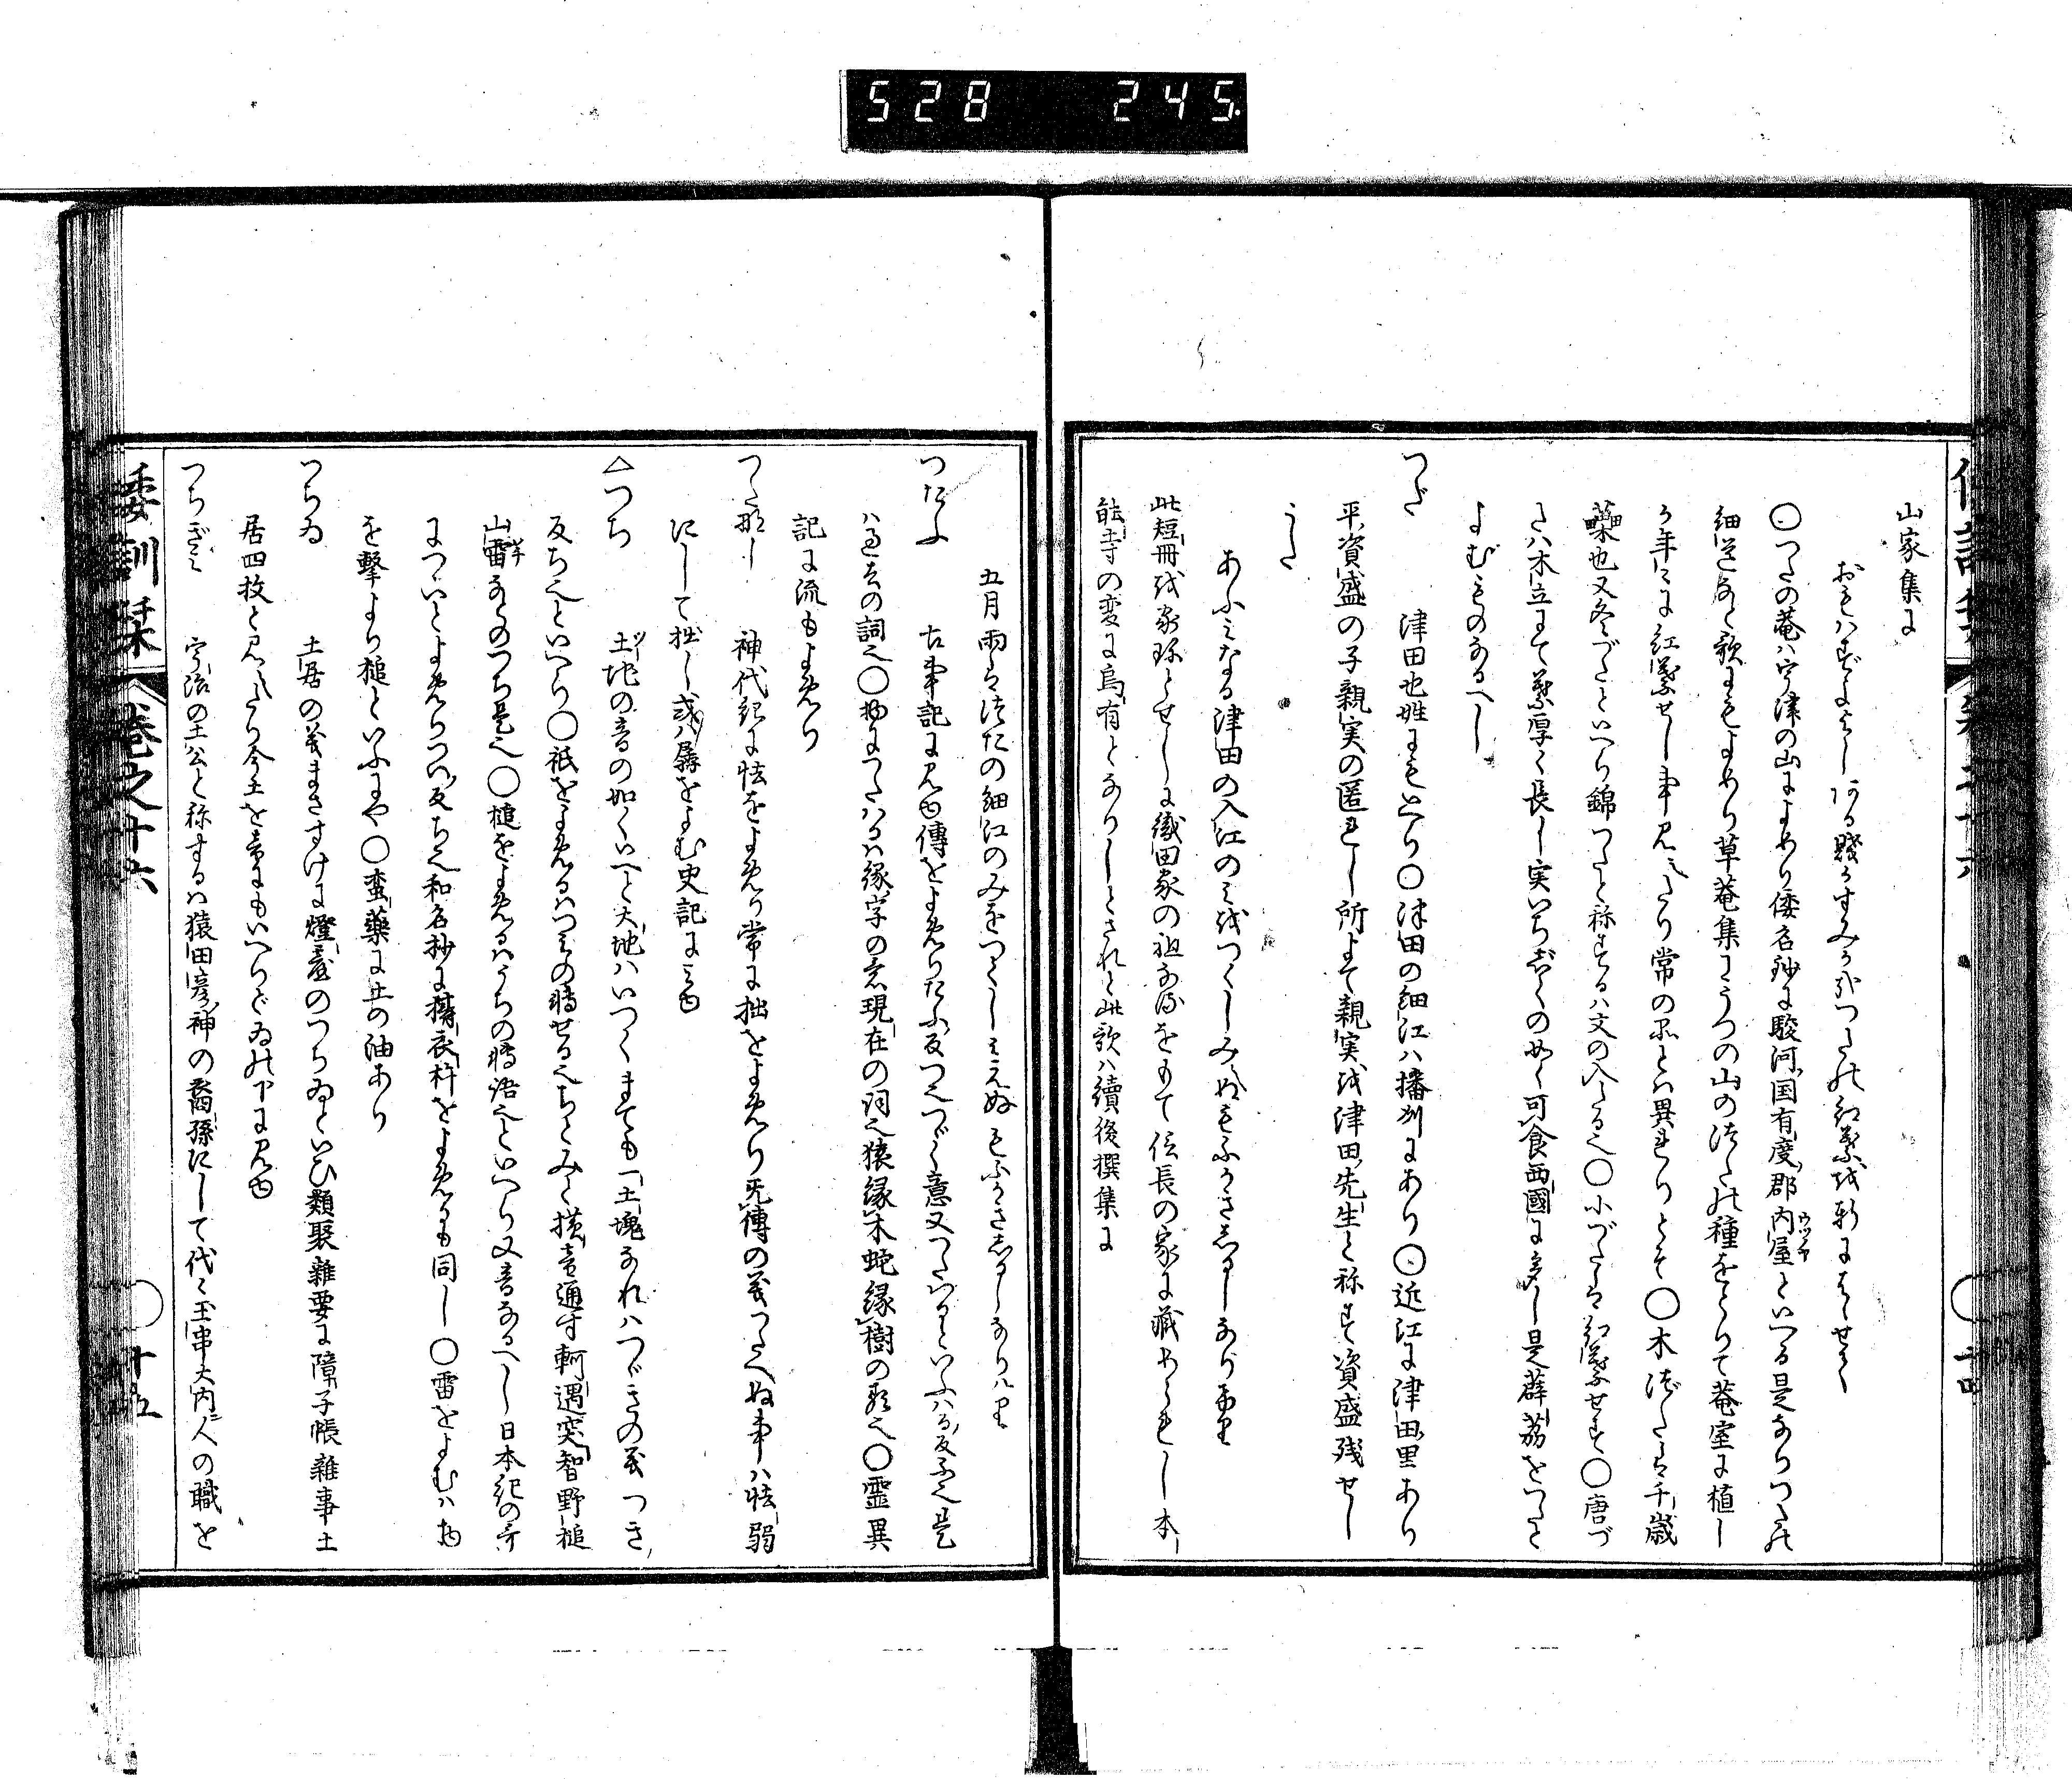 528 245
山家集に
おもはすよよしある賤かすみかかなつたの紅葉を軒にははせて
〇つたの菴ハ宇津の山によめり倭名鈔に駿河国有度郡内屋といへる是なりつたの
ウツノヤ
細道なと歌にもよめり草菴集にうつの山のつたの種をとりて菴室に植し
か年々に紅葉せし事見えたり常の品とハ異なりとそ〇木づたは千歳
蘽也又冬づたといへり錦つたと称するハ文の入たる也〇小づたは紅葉せす〇唐づ
たハ木立にて葉厚く長し実いちぢくの如く可食西國に多し是薜茘をつたと
よむものなるへし
つだ 津田也姓にもいへり〇津田の細江ハ播州にあり〇近江に津田里あり
平資盛の子親実の匿れし所にて親実を津田先生と称す資盛残せし
うた
あふみなる津田の入江のみをつくしみえぬもふかきしるしなりけり
此短冊を家珍とせしに織田家の祖なるをもて信長の家に蔵められし本
能寺の変に烏有となりしとされと此歌ハ續後撰集に
五月雨はつたの細江のみをつくしみえぬもふかきしるしなりけり
つたふ 古事記に見ゆ傳をよめりたふ反つ也つゞく意又つたはるといふハる反ふ也是
ハ過去の詞也〇物につたハるハ縁字の意現在の詞也猿縁木蛇縁樹の類也〇霊異
記に流もよめり
つたなし 神代紀に怯をよめり常に拙をよめり無傳の義つたへぬ事ハ怯弱
にして拙し或ハ孱をよむ史記に見ゆ
△つち 土地の音の如くいへと大地ハいつくまても一土塊なれハつゞきの義つき
反ちといへり〇祇をよめるハつみの轉せる也ちとみと横音通す軻遇突智野槌
山雷なとのつち是也〇槌をよめるハうちの轉語也といへり又音なるへし日本紀の哥
につゝいとよめりつい反ち也和名抄に擣衣杵をよめるも同し〇雷をよむハ物
を撃より槌といふにや〇蛮薬に土の油あり
つちゐ 土居の義まさすけに燈臺のつちゐといひ類聚雜要に障子帳雜事土
居四枚と見えたり今土を音にもいへりどゐの下に見ゆ
つちぎみ 宇治の土公と称するハ猿田彦神の裔孫にして代々玉串大内人の職を
倭訓栞 巻之十六 十五